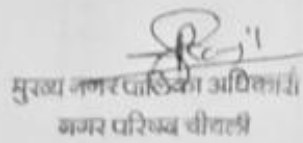 मुख्य नगर पालिका अधिकारी
नगर परिषद चीचली